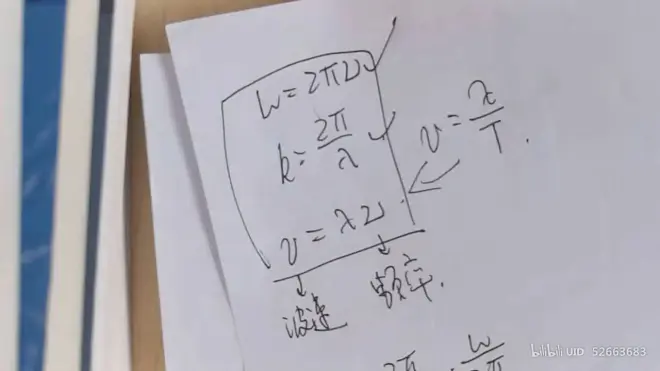 ω=2πν
k=2π/λ
v=λν.
v=λ/T.
波速 频率.
2π ω
bilibili UID 52663683